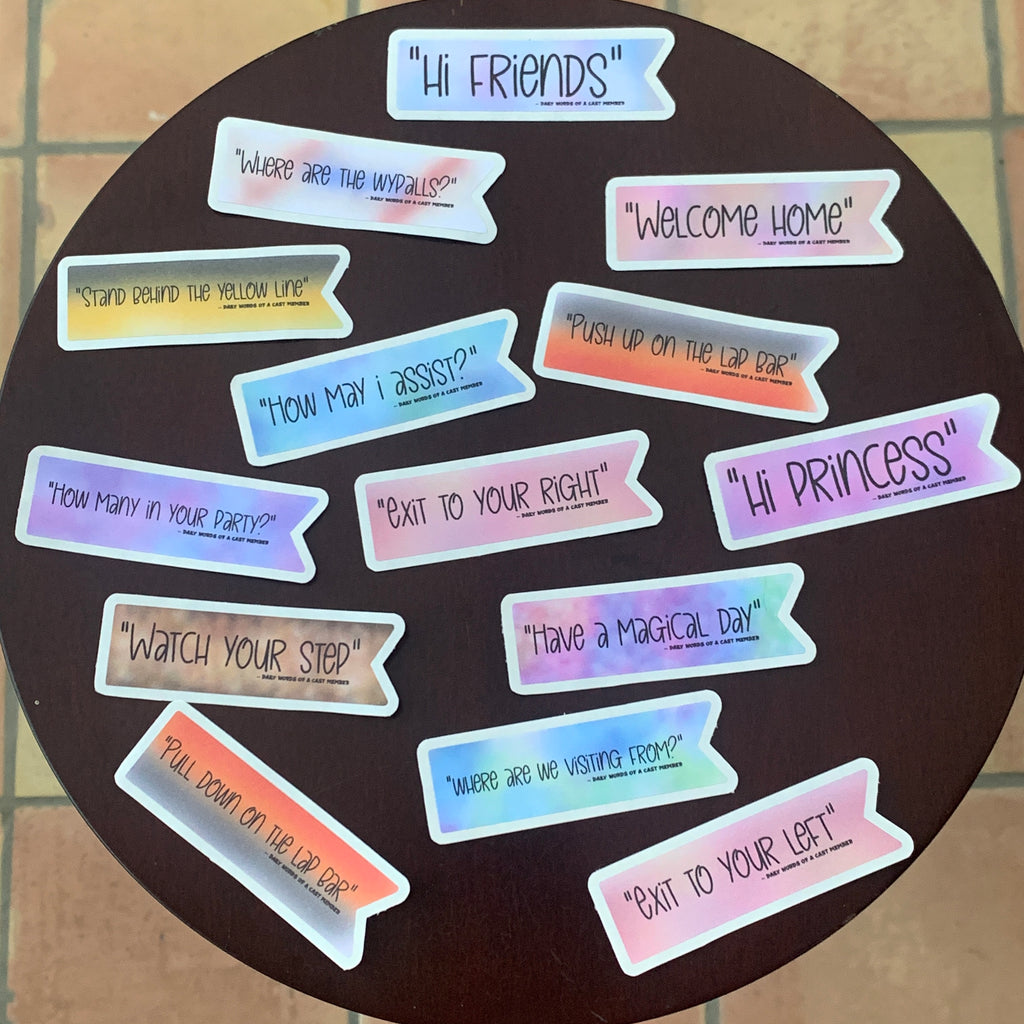 "Hi Friends"
- Daily Words of a Cast Member
"Where are the Wypalls?"
- Daily Words of a Cast Member
"Welcome Home"
- Daily Words of a Cast Member
"Stand behind the yellow line"
- Daily Words of a Cast Member
"Push up on the lap bar"
- Daily Words of a Cast Member
"How may i assist?"
- Daily Words of a Cast Member
"Hi Princess"
- Daily Words of a Cast Member
"Exit to your right"
- Daily Words of a Cast Member
"How many in your party?"
- Daily Words of a Cast Member
"Have a magical day"
- Daily Words of a Cast Member
"Watch your step"
- Daily Words of a Cast Member
"Where are we visiting from?"
- Daily Words of a Cast Member
"Pull down on the lap bar"
- Daily Words of a Cast Member
"Exit to your left"
- Daily Words of a Cast Member